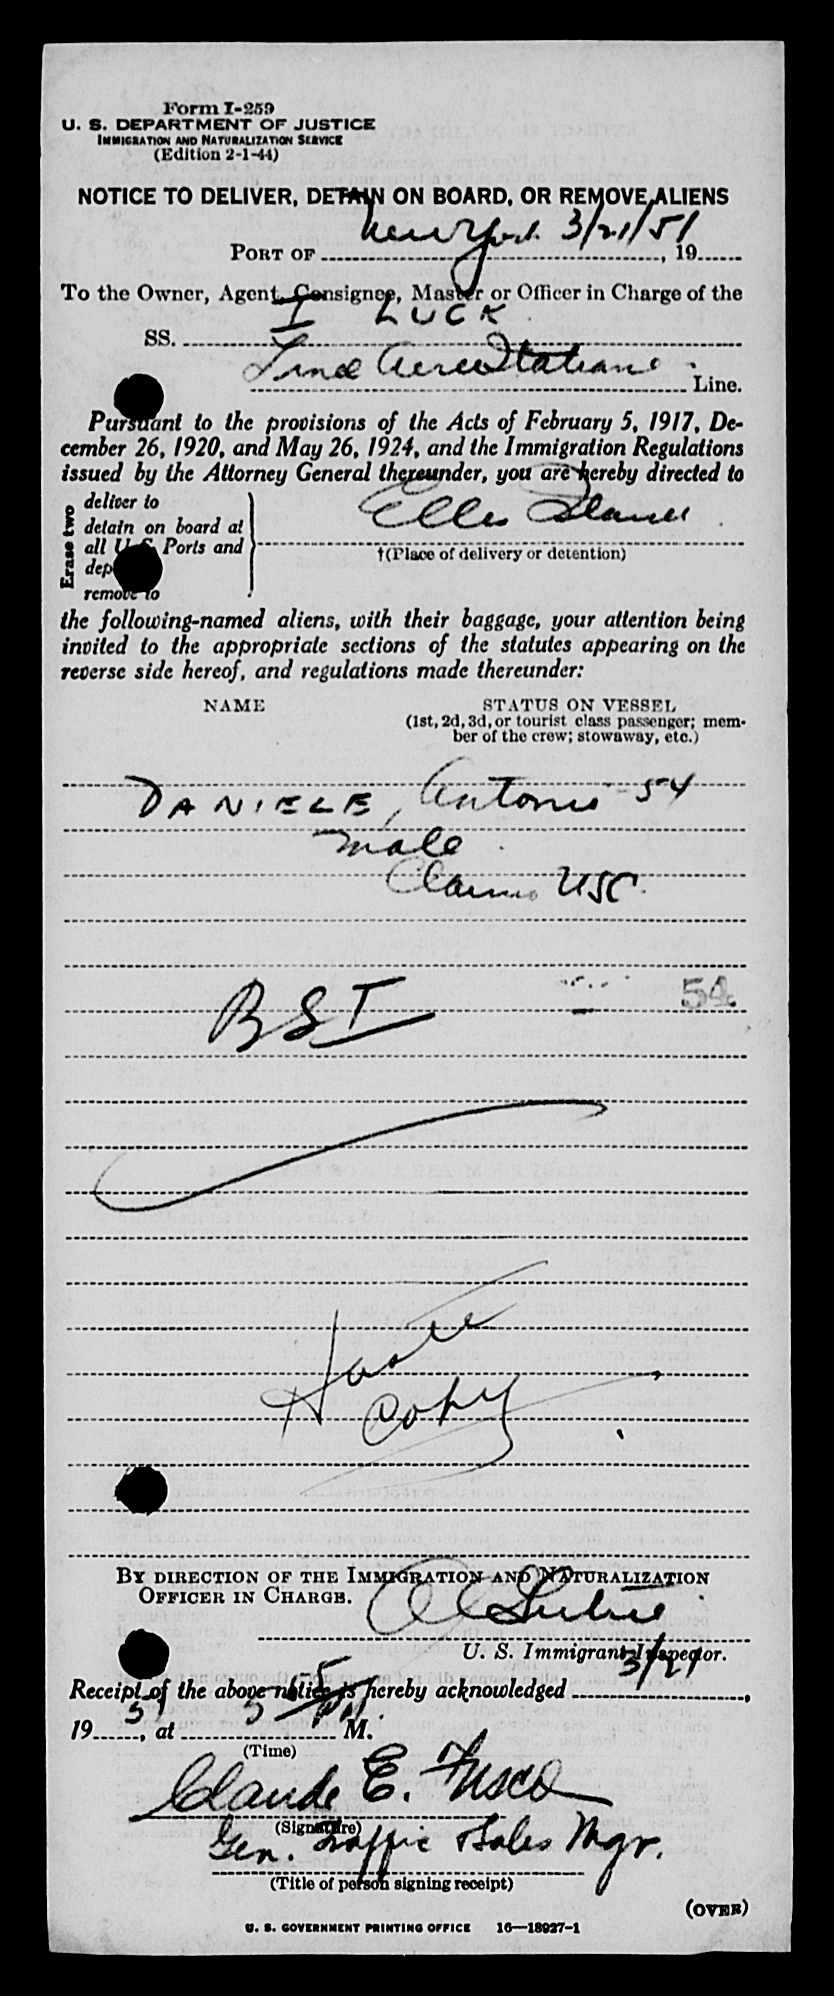 Form I-259
U. S. DEPARTMENT OF JUSTICE
IMMIGRATION AND NATURALIZATION SERVICE
(Edition 2-1-44)
NOTICE TO DELIVER, DETAIN ON BOARD, OR REMOVE ALIENS
PORT OF New York 3/21/51, 19
To the Owner, Agent, Consignee, Master or Officer in Charge of the
SS. I LUCK
Linee Aeree Italiane Line.
Pursuant to the provisions of the Acts of February 5, 1917, De-
cember 26, 1920, and May 26, 1924, and the Immigration Regulations
issued by the Attorney General thereunder, you are hereby directed to
Erase two
deliver to
detain on board at
all U. S. Ports and
dep
remove to
Ellis Island
†(Place of delivery or detention)
the following-named aliens, with their baggage, your attention being
invited to the appropriate sections of the statutes appearing on the
reverse side hereof, and regulations made thereunder:
NAME STATUS ON VESSEL
(1st, 2d, 3d, or tourist class passenger; mem-
ber of the crew; stowaway, etc.)
DANIELE, Antonio - 54
male
Claims USC.
BSI 54
copy
BY DIRECTION OF THE IMMIGRATION AND NATURALIZATION
OFFICER IN CHARGE.
U. S. Immigrant Inspector.
Receipt of the above notice is hereby acknowledged 3/21,
1951, at 5 55 PM. M.
(Time)
Claude E. Fusco
(Signature)
Gen. Traffic Sales Mgr.
(Title of person signing receipt)
(OVER)
U. S. GOVERNMENT PRINTING OFFICE 16—18927-1